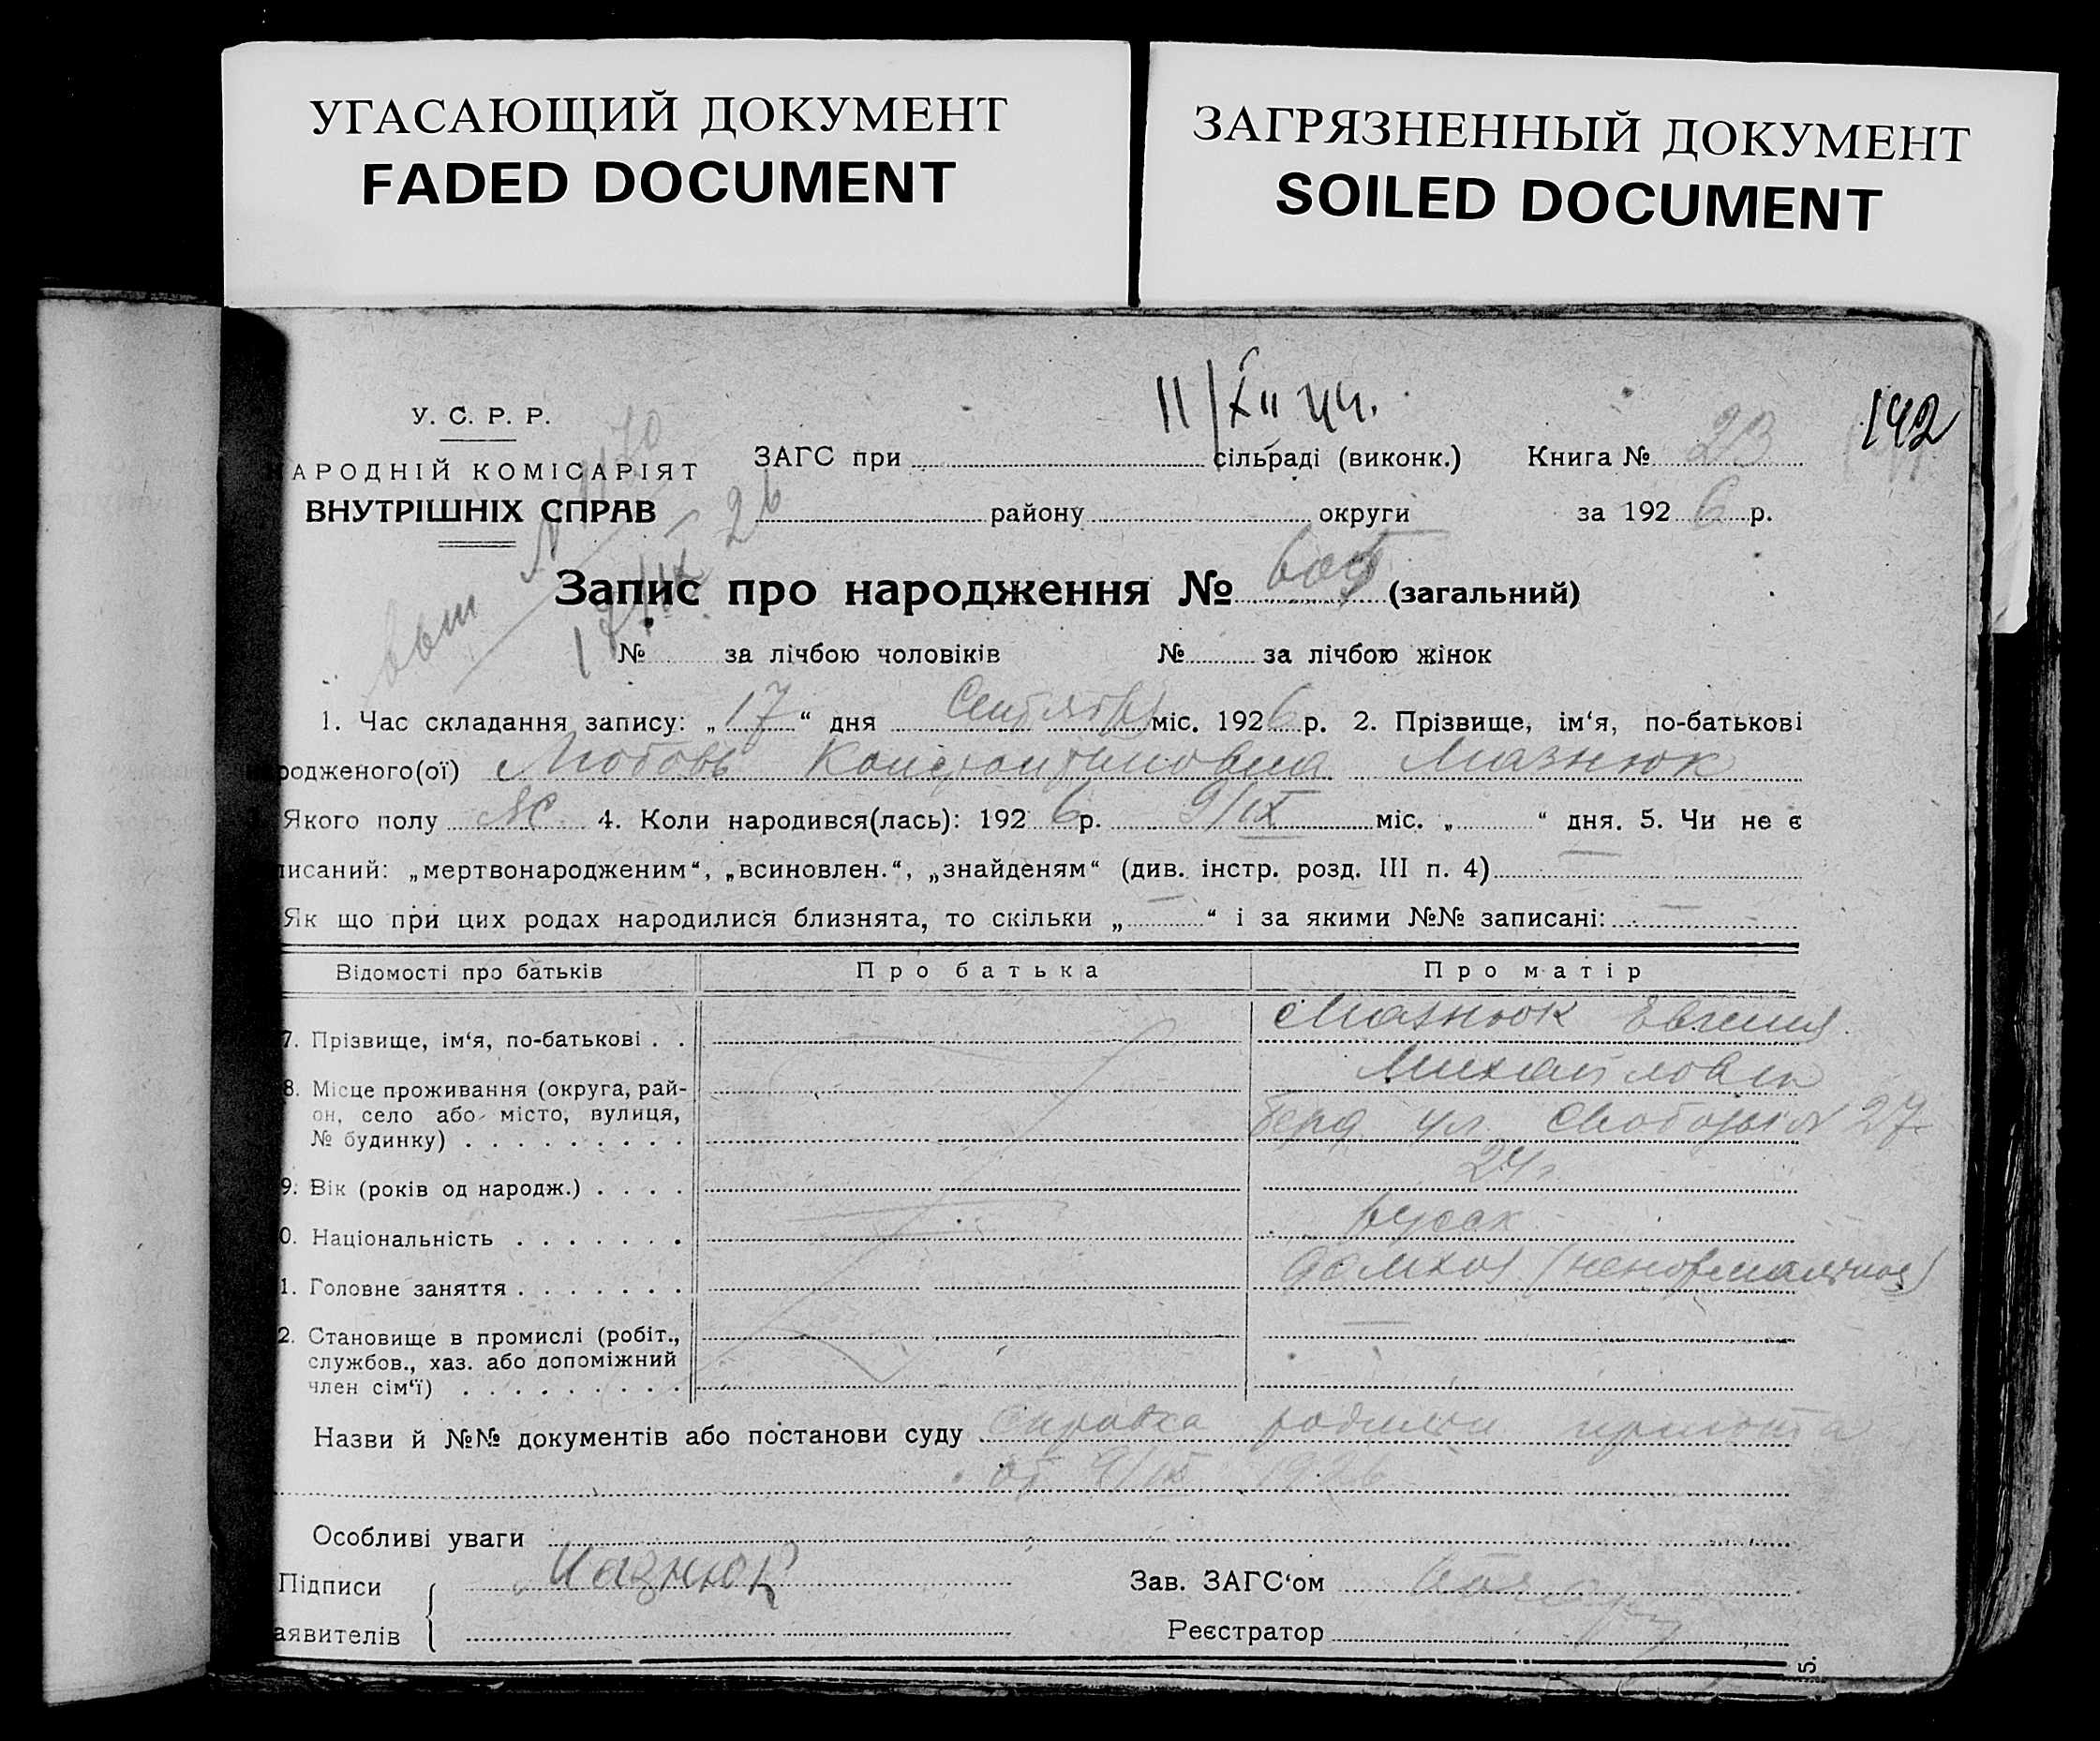 УГАСАЮЩИЙ ДОКУМЕНТ
FADED DOCUMENT
ЗАГРЯЗНЕННЫЙ ДОКУМЕНТ
SOILED DOCUMENT
142
У. С. Р. Р.
АРОДНІЙ КОМІСАРІЯТ
ВНУТРІШНІХ СПРАВ
ЗАГС при сільраді (виконк.) Книга № 23
району округи за 1926 р.
Запис про народження № (загальний)
№ за лічбою чоловіків № за лічбою жінок
1. Час складання запису: „17“ дня Сентября міс. 1926 р. 2. Прізвище, ім‘я, по-батькові
родженого(ої) Любовь Константиновна Мазнюк
Якого полу ж 4. Коли народився(лась): 1926 р. 9/IX міс. „ “ дня. 5. Чи не є
писаний: „мертвонародженим“, „всиновлен.“, „знайденям“ (див. інстр. розд. III п. 4)
Як що при цих родах народилися близнята, то скільки „ “ і за якими №№ записані:
Відомості про батьків Про батька Про матір
7. Прізвище, ім‘я, по-батькові . . Мазнюк Евгения
Михайловна
8. Місце проживання (округа, рай-
он, село або місто, вулиця,
№ будинку) . . . . . . . . . Берд ул. Свободы № 27
9. Вік (років од народж.) . . . . 24 г
0. Національність . . . . . . . русск
1. Головне заняття . . . . . . . домхоз (ненормальная)
2. Становище в промислі (робіт.,
службов., хаз. або допоміжний
член сім‘ї) . . . . . . . . .
Назви й №№ документів або постанови суду Справка родильн приюта
от 9/IX 1926
Особливі уваги
Підписи Мазнюк Зав. ЗАГС‘ом
аявителів Реєстратор
5.